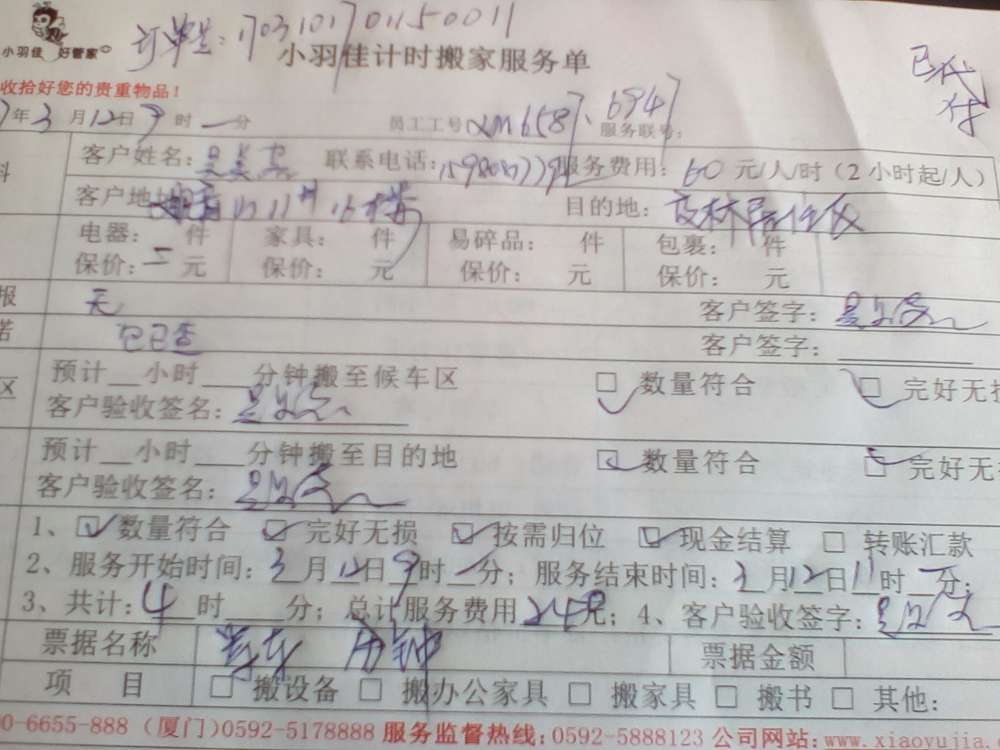 订单号：1703101701150011
小羽佳 好管家
小羽佳计时搬家服务单
已代付
收拾好您的贵重物品！
年3月12日9时一分 员工工号 XM6587、6947 服务联号：
客户姓名： 联系电话： 服务费用：60元/人/时（2小时起/人）
客户地址 11# 16楼 目的地：
电器： 件 家具： 件 易碎品： 件 包裹： 件
保价： 元 保价： 元 保价： 元 保价： 元
报 无 客户签字：
诺 已查 客户签字：
预计__小时___分钟搬至候车区 □ 数量符合 □ 完好无损
区 客户验收签名：
预计__小时___分钟搬至目的地 □ 数量符合 □ 完好无
客户验收签名：
1、☑数量符合 ☑完好无损 ☑按需归位 ☑现金结算 □ 转账汇款
2、服务开始时间：3月12日9时一分；服务结束时间：3月12日11时一分；
3、共计：4时___分；总计服务费用 元；4、客户验收签字：
票据名称 票据金额
项 目 □ 搬设备 □ 搬办公家具 □ 搬家具 □ 搬书 □ 其他：
0-6655-888（厦门）0592-5178888 服务监督热线：0592-5888123 公司网站：www.xiaoyujia.